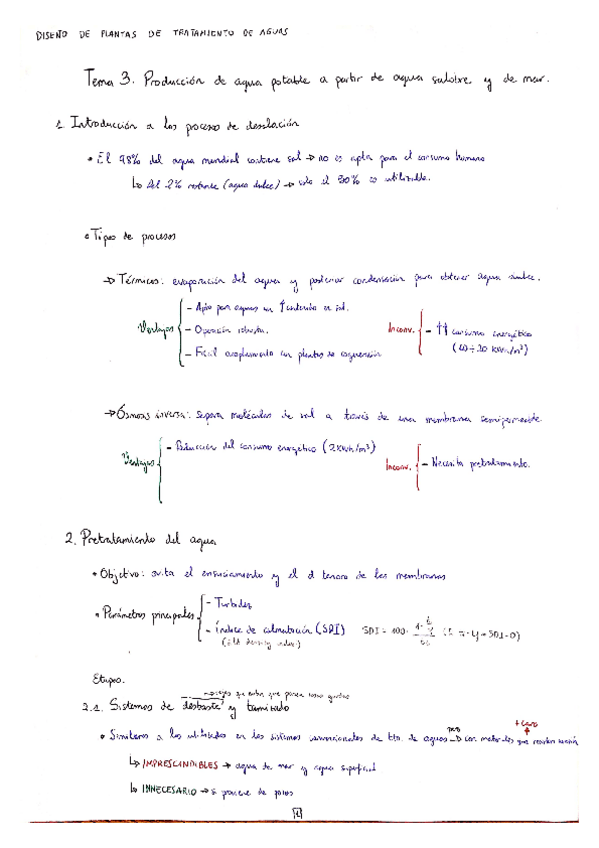 DISEÑO DE PLANTAS DE TRATAMIENTO DE AGUAS
Tema 3. Producción de agua potable a partir de agua salobre y de mar.
1. Introducción a los procesos de desalación
• El 98% del agua mundial contiene sal → no es apta para el consumo humano
↳ del 2% restante (agua dulce) → solo el % es utilizable.
• Tipos de procesos
→ Térmicos: evaporación del agua y posterior condensación para obtener agua dulce.
Ventajas
- Apto para aguas con ↑ contenido en sal.
- Operación robusta.
- Fácil acoplamiento con plantas de cogeneración
Inconv.
- ↑↑ consumo energético
(10 ÷ 20 kWh/m³)
→ Ósmosis inversa: separa moléculas de sal a través de una membrana semipermeable
Ventajas
- Reducción del consumo energético (2 kWh/m³)
Inconv.
- Necesita pretratamiento.
2. Pretratamiento del agua
• Objetivo: evita el ensuciamiento y el de las membranas
• Parámetros principales
- Turbidez
- Índice de colmatación (SDI) SDI = 100 ·
(silt density index)
Etapas.
que evitan que pasen cosas grandes
2.1. Sistemas de desbaste y tamizado
+ caro
• Similares a los utilizados en los sistemas convencionales de tto. de aguas → con materiales que resistan
↳ IMPRESCINDIBLES → agua de mar y agua superficial
↳ INNECESARIO → si procede de pozos
[1]